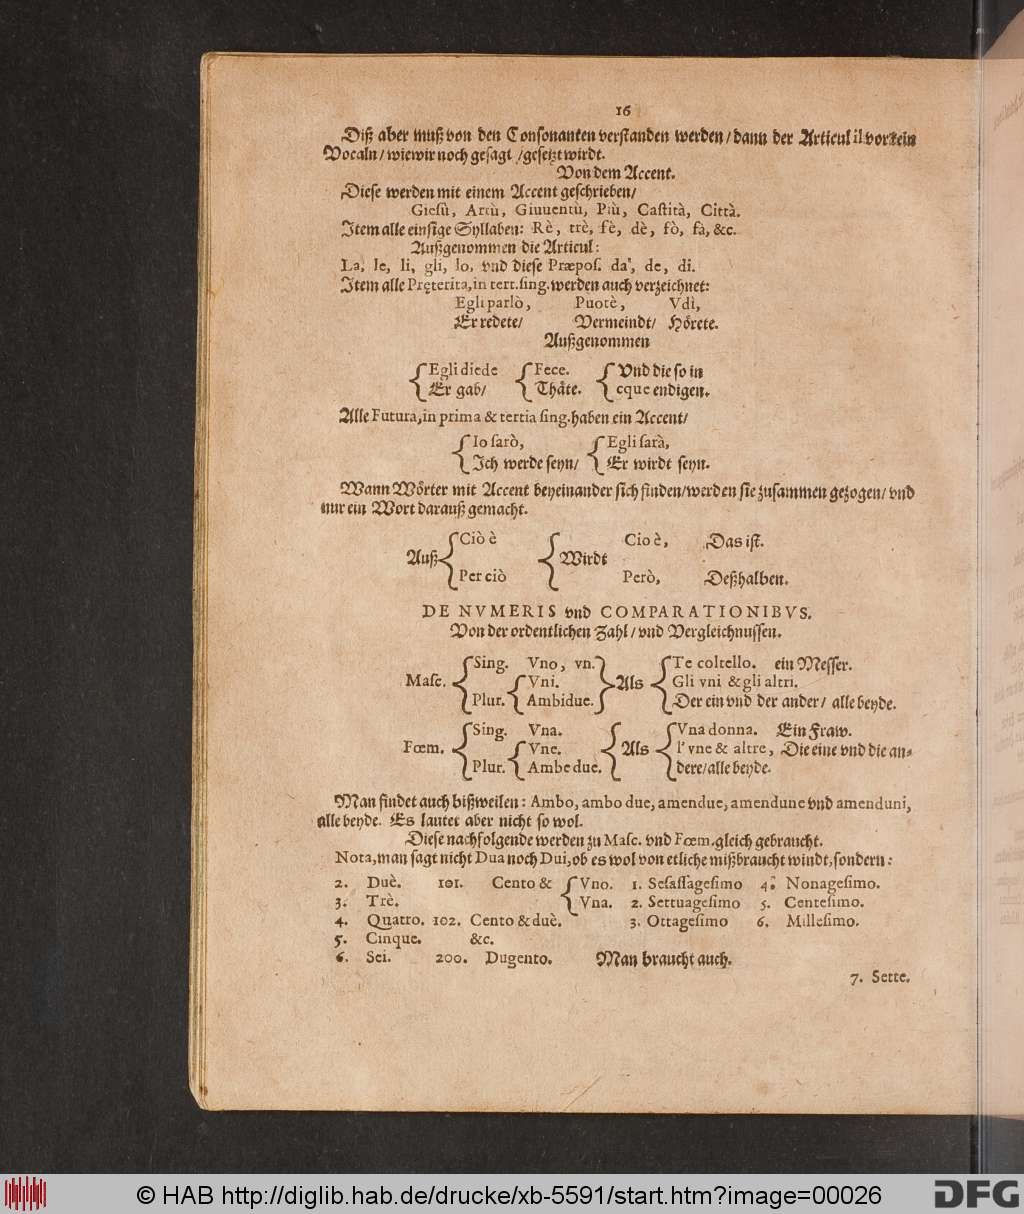 16
Diß aber muß von den Consonanten verstanden werden / dann der Articul il vor kein
Vocaln / wie wir noch gesagt / gesetzt wirdt.
Von dem Accent.
Diese werden mit einem Accent geschrieben /
Giesù, Artù, Giuuentù, Più, Castità, Città.
Item alle einsige Syllaben: Rè, trè, fè, dè, fò, fà, &c.
Außgenommen die Articul:
La, le, li, gli, lo, vnd diese Præpos. da', de, di.
Item alle Pręterita, in tert. sing. werden auch verzeichnet:
Egli parlò, Puotè, Vdì,
Er redete / Vermeindt / Hörete.
Außgenommen
Egli diede Fece. Vnd die so in
Er gab / Thäte. eque endigen.
Alle Futura, in prima & tertia sing. haben ein Accent /
Io sarò, Egli sarà,
Ich werde seyn / Er wirdt seyn.
Wann Wörter mit Accent beyeinander sich finden / werden sie zusammen gezogen / vnd
nur ein Wort darauß gemacht.
Ciò è Cio è, Das ist.
Auß Wirdt
Per ciò Però, Deßhalben.
DE NVMERIS vnd COMPARATIONIBVS.
Von der ordentlichen Zahl / vnd Vergleichnussen.
Sing. Vno, vn. Te coltello. ein Messer.
Masc. Vni. Als Gli vni & gli altri.
Plur. Ambidue. Der ein vnd der ander / alle beyde.
Sing. Vna. Vna donna. Ein Fraw.
Fœm. Vne. Als l' vne & altre, Die eine vnd die an-
Plur. Ambe due. dere / alle beyde.
Man findet auch bißweilen: Ambo, ambo due, amendue, amendune vnd amenduni,
alle beyde. Es lautet aber nicht so wol.
Diese nachfolgende werden zu Masc. vnd Fœm. gleich gebraucht.
Nota, man sagt nicht Dua noch Dui, ob es wol von etliche mißbraucht windt, sondern:
2. Duè. 101. Cento & Vno. 1. Sesassagesimo 4. Nonagesimo.
3. Trè. Vna. 2. Settuagesimo 5. Centesimo.
4. Quatro. 102. Cento & duè. 3. Ottagesimo 6. Millesimo.
5. Cinque. &c.
6. Sei. 200. Dugento. Man braucht auch.
7. Sette.
© HAB http://diglib.hab.de/drucke/xb-5591/start.htm?image=00026
DFG